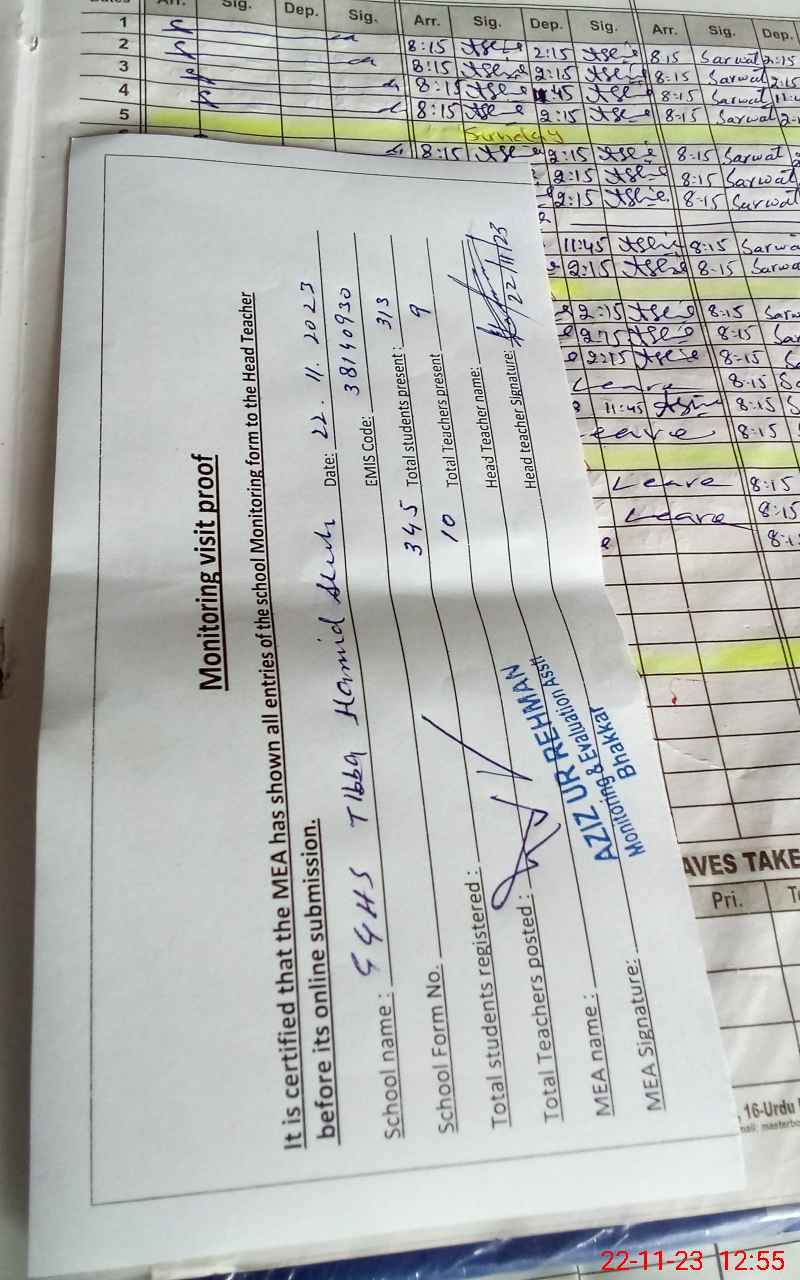 Sig. Dep. Sig. Arr. Sig. Dep. Sig. Arr. Sig. Dep.
1
2 8:15 2:15 8:15 Sarwat 2:15
3 8:15 2:15 8:15 Sarwat 2:15
4 8:15 :45 8:15 Sarwat
5 8:15 2:15 8:15 Sarwat
Sunday
8:15 2:15 8:15 Sarwat
2:15 8:15 Sarwat
2:15 8:15 Sarwat
11:45 8:15 Sarwa
2:15 8:15 Sarwa
2:15 8:15
2:15 8:15
2:15 8:15
Leave 8:15
11:45 8:15
eave 8:15
Leave 8:15
Leave 8:15
8:1
Monitoring visit proof
It is certified that the MEA has shown all entries of the school Monitoring form to the Head Teacher
before its online submission.
School name : GGHS Tibba Hamid Shah Date: 22.11.2023
School Form No. EMIS Code: 38140930
Total students registered : 345 Total students present : 313
Total Teachers posted : 10 Total Teachers present 9
MEA name : Head Teacher name:
MEA Signature: Head teacher Signature: 22/11/23
AZIZ UR REHMAN
Monitoring & Evaluation Asstt
Bhakkar
AVES TAKE
Pri.
16-Urdu
22-11-23 12:55